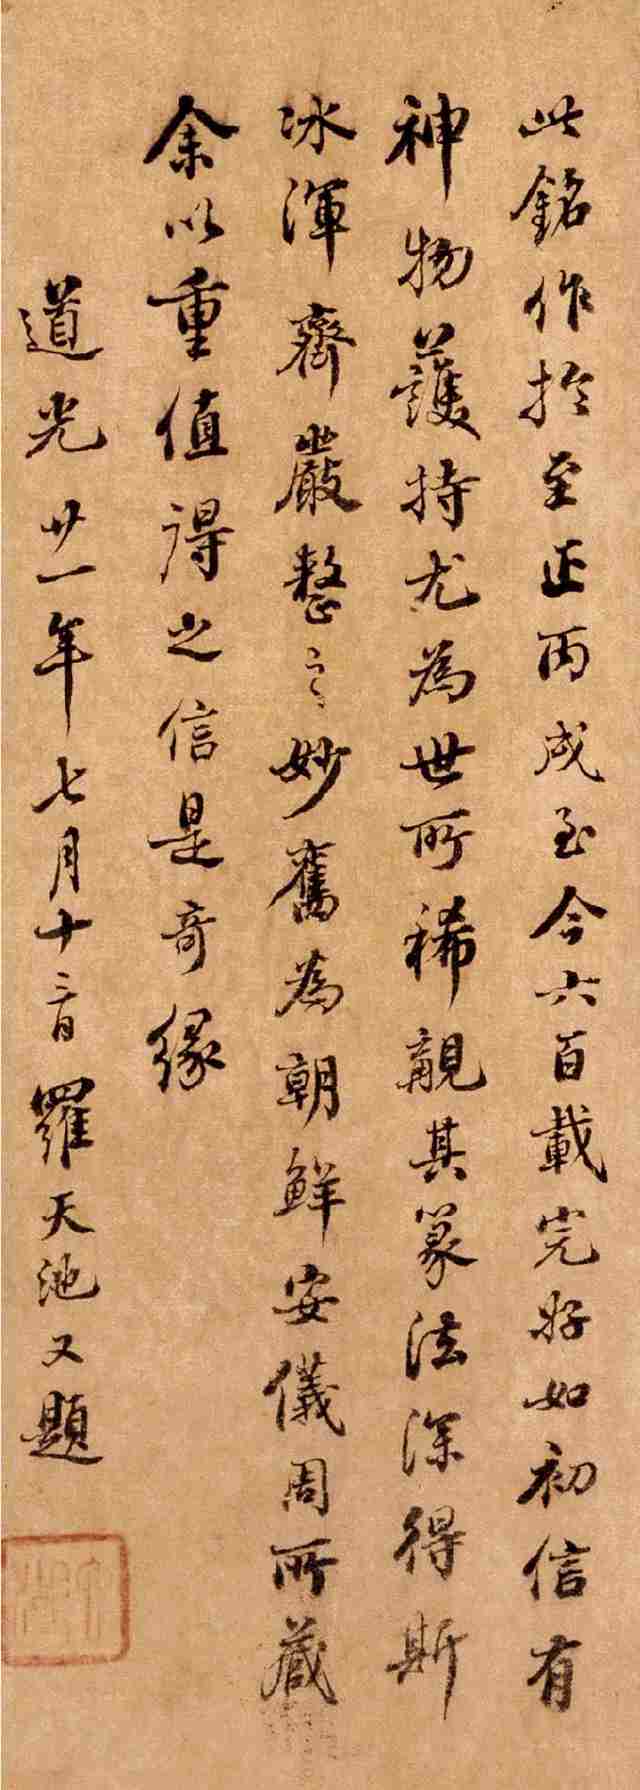 此銘作於至正丙戌至今六百載完好如初信有
神物護持尤為世所稀覯其篆法深得斯
冰渾齊嚴整之妙舊為朝鮮安儀周所藏
余以重值得之信是奇緣
道光廿一年七月十三日羅天池又題